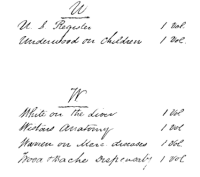 U
U. S. Register 1 vol.
Underwood on Children 1 Vol.
W
White on the liver 1 Vol
Wistars Anatomy 1 vol
Warren on Merc. diseases 1 Vol
Wood & Bache Dispensary 1 vol